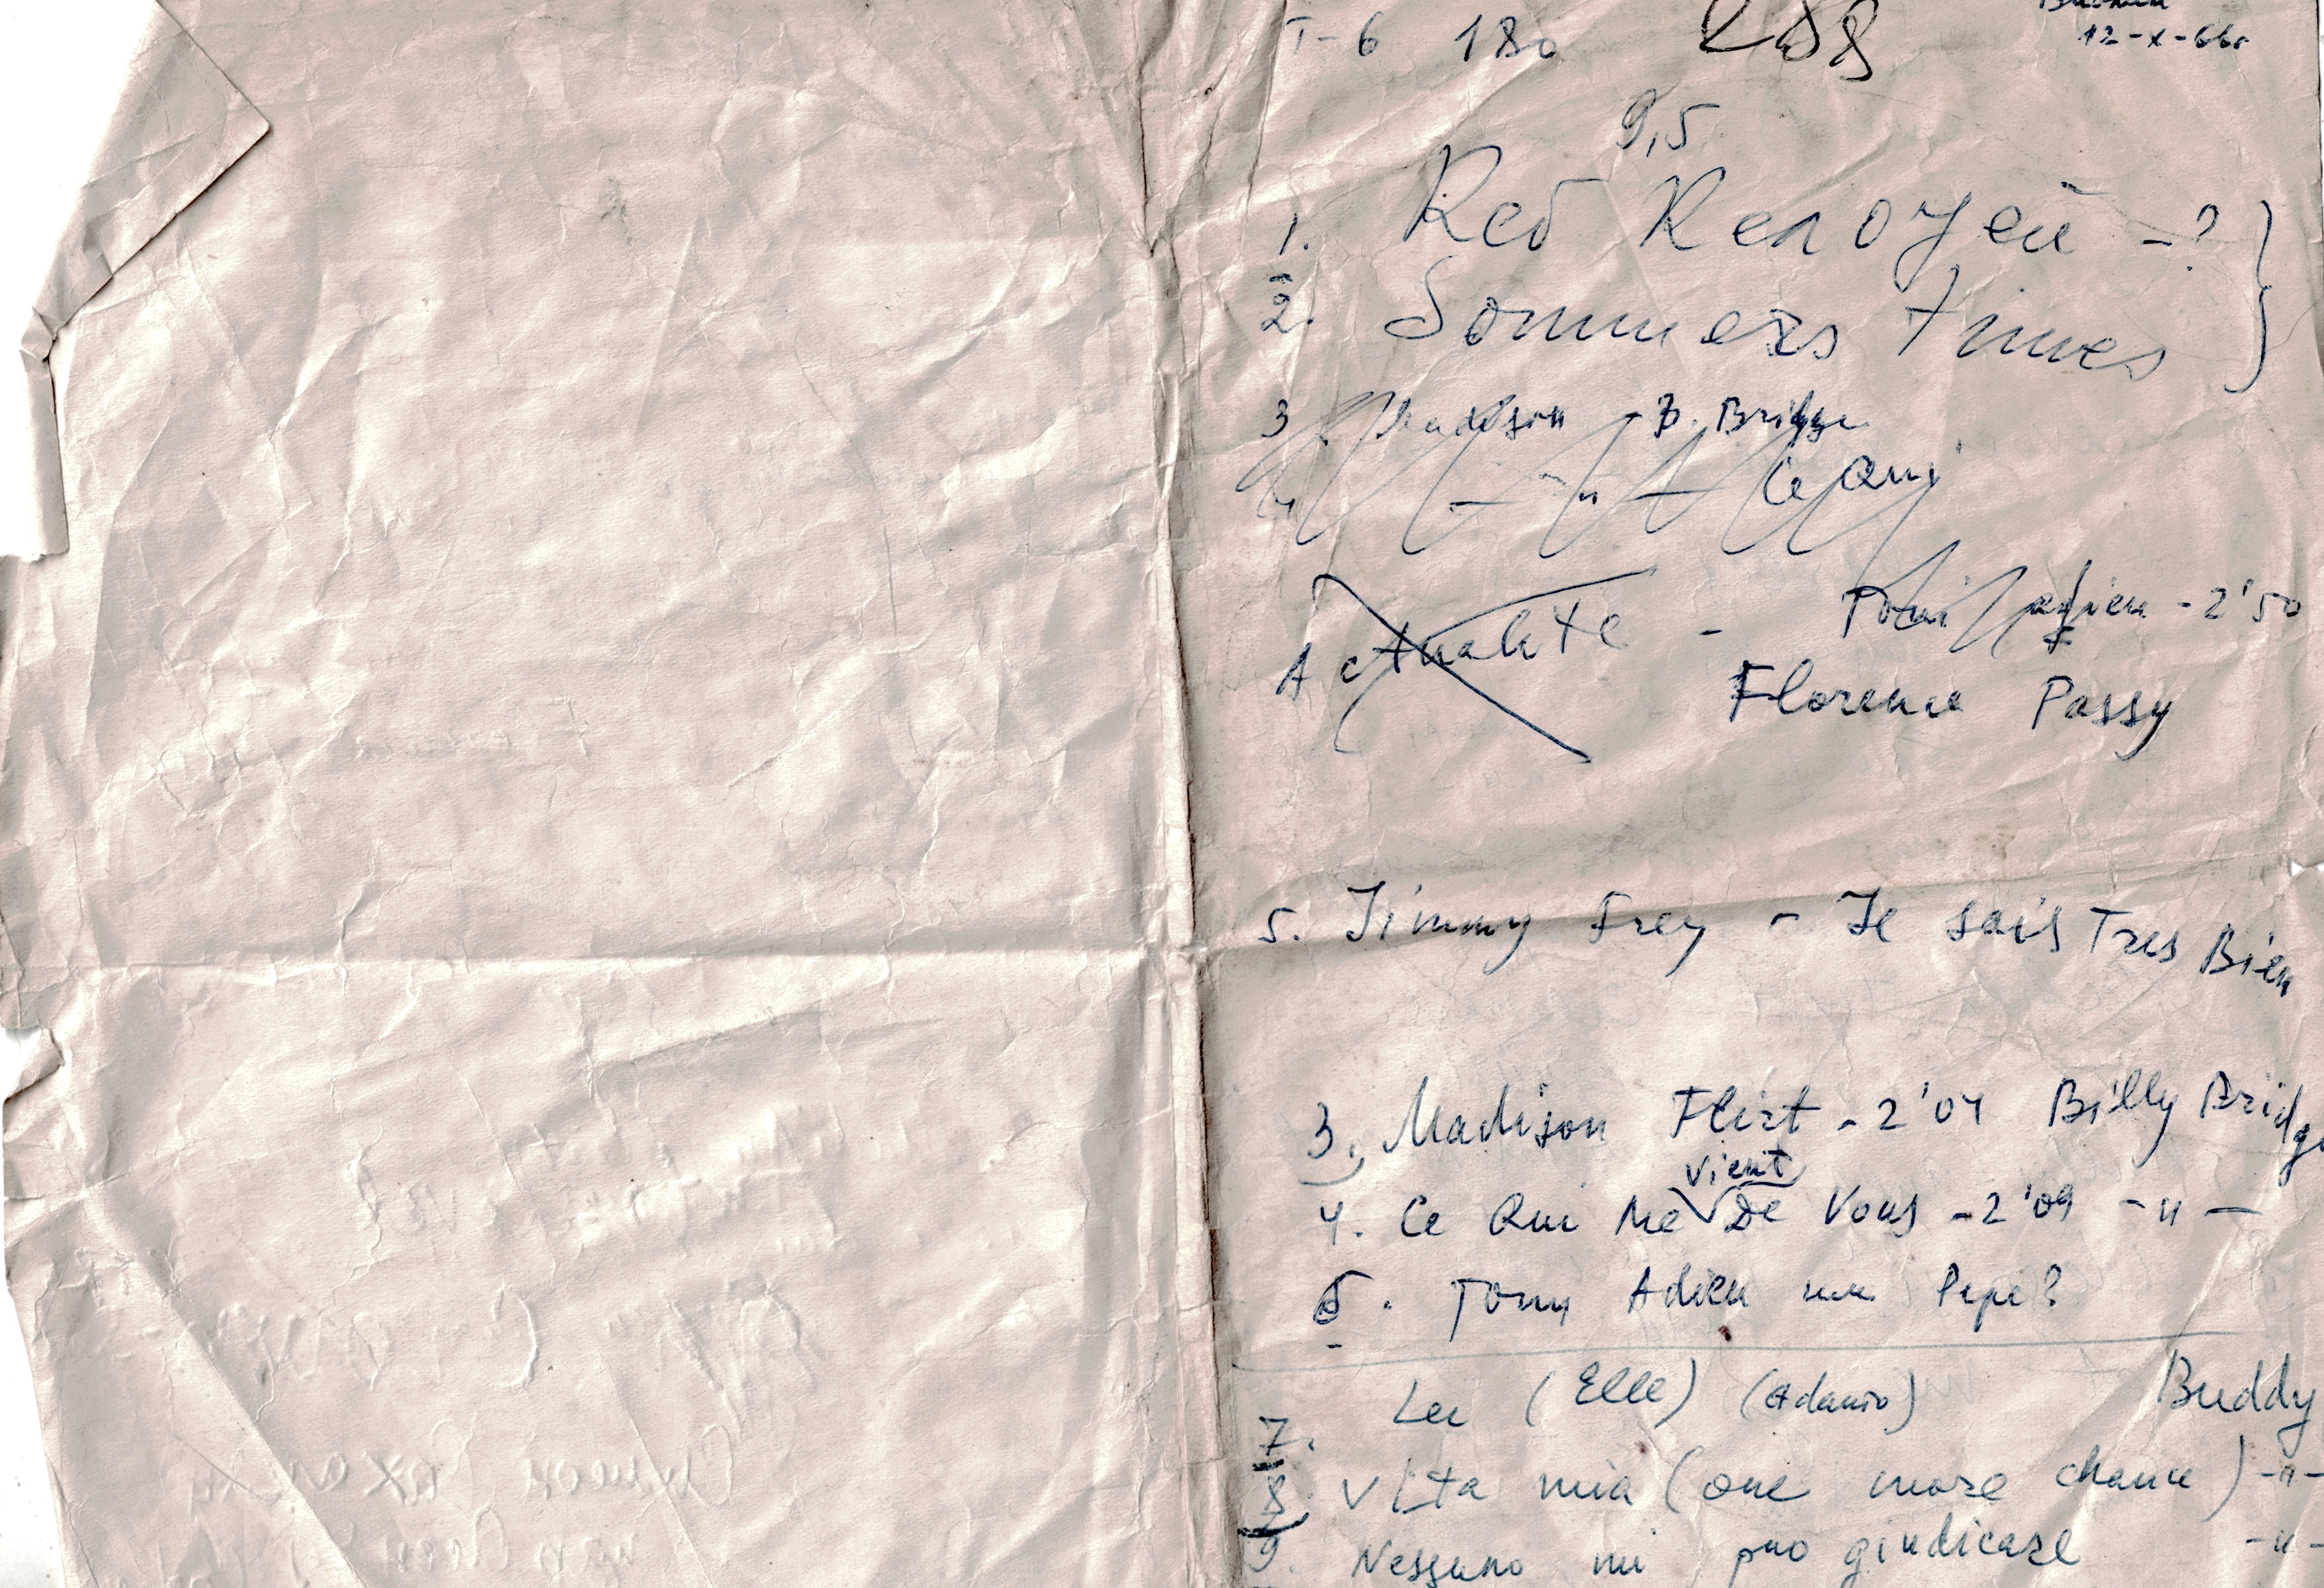 T-6 180 288
12-X-66г
9,5
1. Red Kenoyeu -?
2. Sommers times
3. Madison B. Bridge
4. — " — Ce Qui
Actualite - Toni adieu - 2'50
Florence Passy
5. Jimmy Frey - Je sais Tres Bien
3. Madison Flirt - 2'04 Billy Bridge
vient
4. Ce Qui Me De Vous - 2'09 - " —
6. Tony Adieu Pepe?
Lei (Elle) (Adamo) Buddy
7.
8. Vita mia (one more chance) - " -
9. Nessuno mi puo giudicare - " -